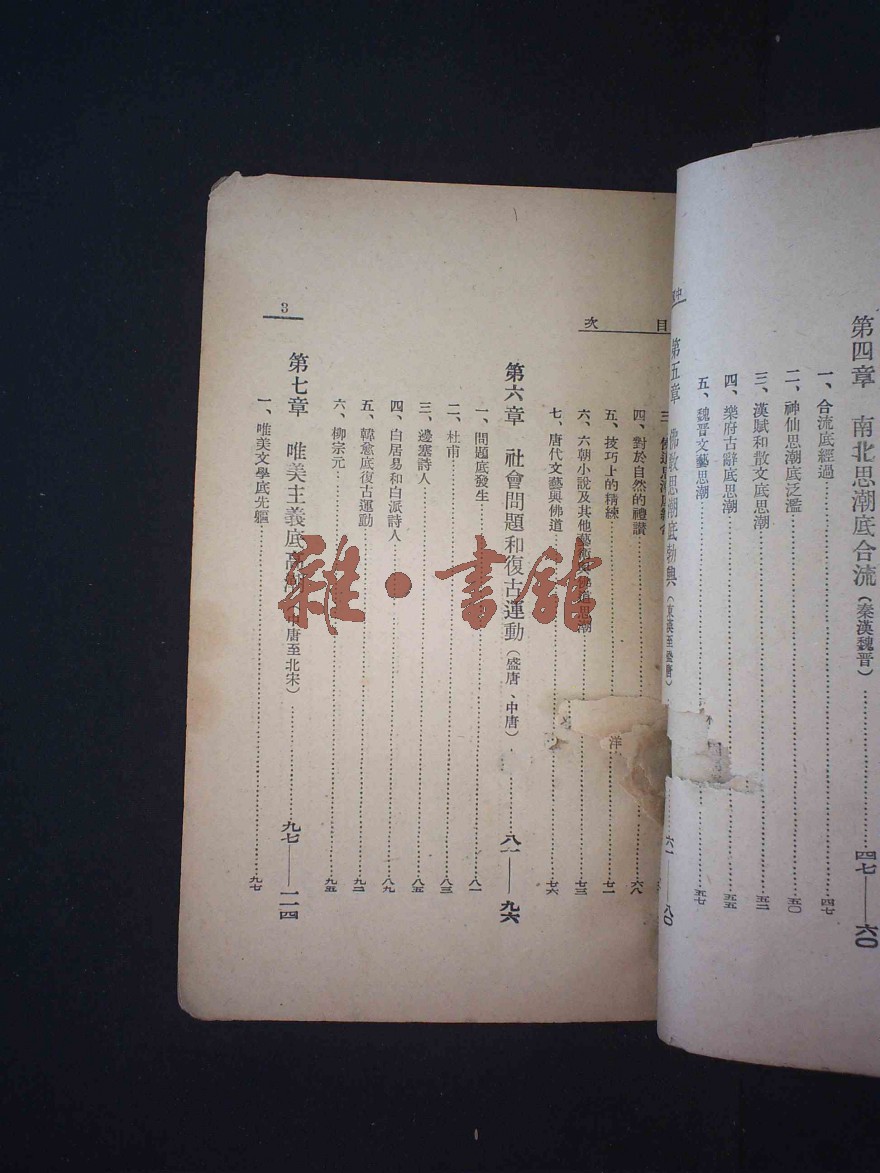 第四章 南北思潮底合流(秦漢魏晉)……四七——六〇
一、合流底經過……四七
二、神仙思潮底泛濫……五〇
三、漢賦和散文底思潮……五二
四、樂府古辭底思潮……五五
五、魏晉文藝思潮……五七
第五章 佛教思潮底勃興
目次
四、對於自然的禮讚……六八
五、技巧上的精練……七一
六、六朝小說及其他藝術與佛道思潮……七三
七、唐代文藝與佛道……七六
第六章 社會問題和復古運動(盛唐、中唐)……八一——九六
一、問題底發生……八一
二、杜甫……八三
三、邊塞詩人……八五
四、白居易和白派詩人……八九
五、韓愈底復古運動……九二
六、柳宗元……九五
第七章 唯美主義底高潮(中唐至北宋)……九七——一一四
一、唯美文學底先軀……九七
3
雜·書館